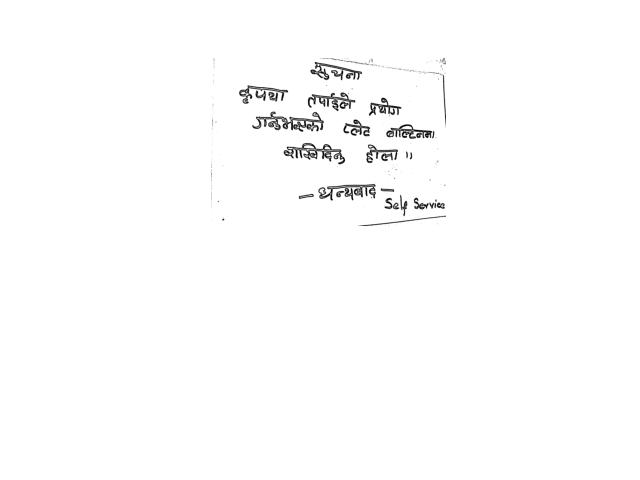 सुचना
कृपया तपाईले प्रयोग
गर्नुभएको प्लेट बाल्टिनमा
राखिदिनु होला ।।
- धन्यबाद -
Self Service